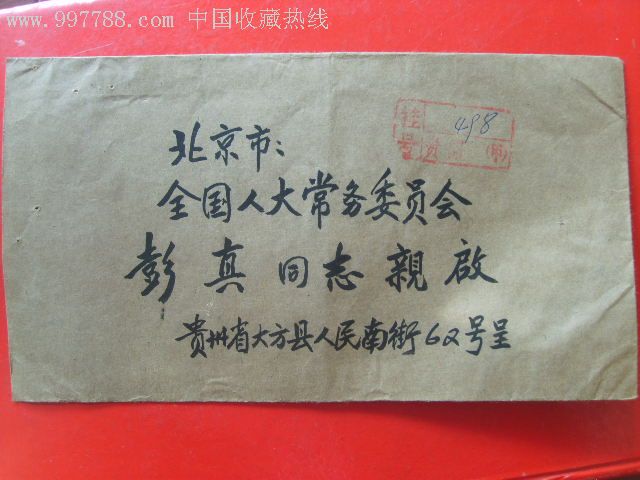 www.997788.com 中国收藏热线
挂号 498
北京市:
全国人大常务委员会
彭真同志親啟
贵州省大方县人民南街62号呈